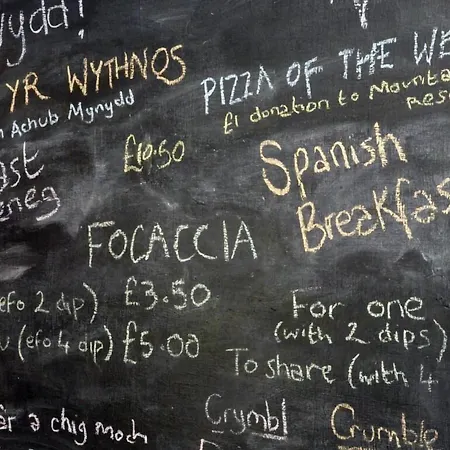 ydd!
YR WYTHNOS
Achub Mynydd
£10.50
PIZZA OF THE WE
£1 donation to Mountai
Resc
ast
eneg
Spanish
Breakfas
FOCACCIA
efo 2 dip) £3.50
u (efo 4 dip) £5.00
For one
(with 2 dips)
To share (with 4
âr a chig moch
Crymbl
Crumble